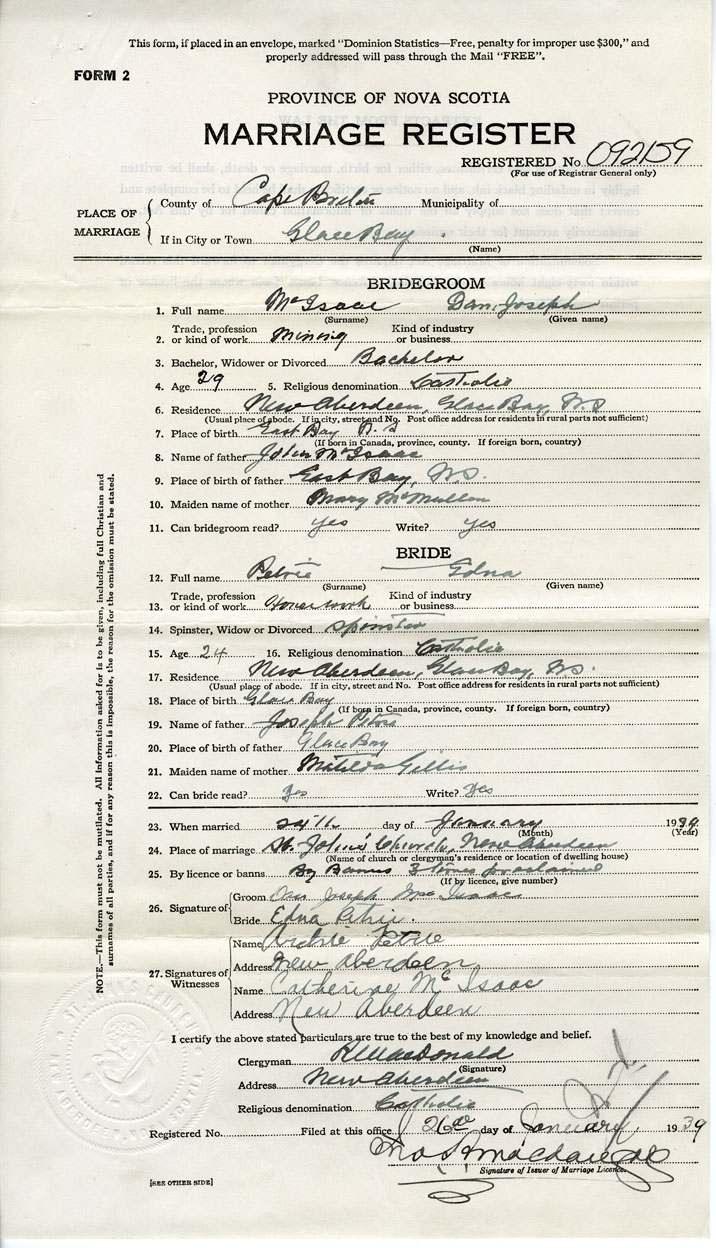 This form, if placed in an envelope, marked "Dominion Statistics—Free, penalty for improper use $300," and
properly addressed will pass through the Mail "FREE".
FORM 2
PROVINCE OF NOVA SCOTIA
MARRIAGE REGISTER
REGISTERED No. 092159
(For use of Registrar General only)
PLACE OF MARRIAGE
County of Cape Breton Municipality of
If in City or Town Glace Bay
(Name)
BRIDEGROOM
1. Full name McIsaac Dan Joseph
(Surname) (Given name)
2. Trade, profession or kind of work Mining Kind of industry or business
3. Bachelor, Widower or Divorced Bachelor
4. Age 29 5. Religious denomination Catholic
6. Residence New Aberdeen, Glace Bay, N.S
(Usual place of abode. If in city, street and No. Post office address for residents in rural parts not sufficient)
7. Place of birth East Bay N.S
(If born in Canada, province, county. If foreign born, country)
8. Name of father John McIsaac
9. Place of birth of father East Bay, N.S.
10. Maiden name of mother Mary McMullen
11. Can bridegroom read? yes Write? yes
BRIDE
12. Full name Petrie Edna
(Surname) (Given name)
13. Trade, profession or kind of work Housework Kind of industry or business
14. Spinster, Widow or Divorced Spinster
15. Age 24 16. Religious denomination Catholic
17. Residence New Aberdeen, Glace Bay, N.S.
(Usual place of abode. If in city, street and No. Post office address for residents in rural parts not sufficient)
18. Place of birth Glace Bay
(If born in Canada, province, county. If foreign born, country)
19. Name of father Joseph Petrie
20. Place of birth of father Glace Bay
21. Maiden name of mother Matilda Gillis
22. Can bride read? Yes Write? Yes
23. When married 24th day of January 1939
(Month) (Year)
24. Place of marriage St. John's Church, New Aberdeen
(Name of church or clergyman's residence or location of dwelling house)
25. By licence or banns By Banns 3 times proclaimed
(If by licence, give number)
26. Signature of
Groom Dan Joseph MacIsaac
Bride Edna Petrie.
27. Signatures of Witnesses
Name Petrie
Address New Aberdeen
Name Catherine McIsaac
Address New Aberdeen
I certify the above stated particulars are true to the best of my knowledge and belief.
Clergyman MacDonald
(Signature)
Address New Aberdeen
Religious denomination Catholic
Registered No. Filed at this office 26th day of January 1939
Signature of Issuer of Marriage Licence.
[SEE OTHER SIDE]
NOTE.—This form must not be mutilated. All information asked for is to be given, including full Christian and
surnames of all parties, and if for any reason this is impossible, the reason for the omission must be stated.